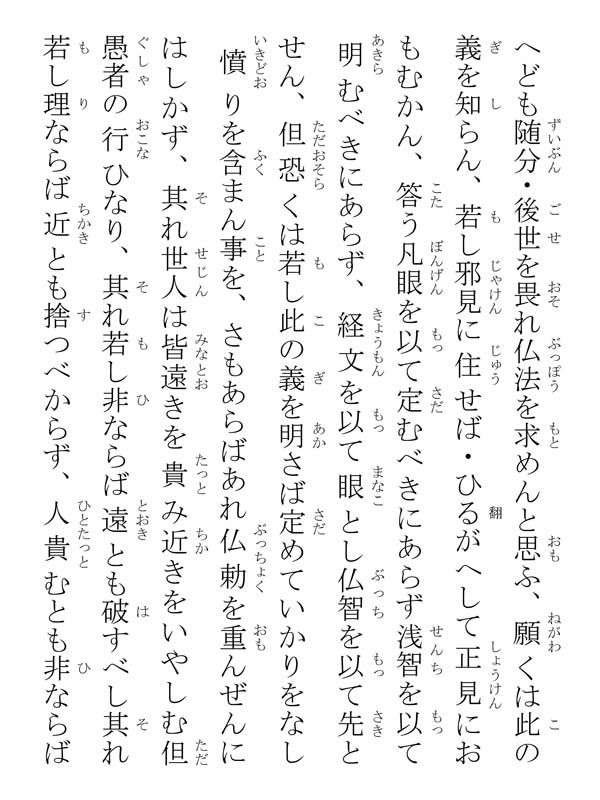 へども随分・後世を畏れ仏法を求めんと思ふ、願くは此の
義を知らん、若し邪見に住せば・ひるがへして正見にお
もむかん、答う凡眼を以て定むべきにあらず浅智を以て
明むべきにあらず、経文を以て眼とし仏智を以て先と
せん、但恐くは若し此の義を明さば定めていかりをなし
憤りを含まん事を、さもあらばあれ仏勅を重んぜんに
はしかず、其れ世人は皆遠きを貴み近きをいやしむ但
愚者の行ひなり、其れ若し非ならば遠とも破すべし其れ
若し理ならば近とも捨つべからず、人貴むとも非ならば